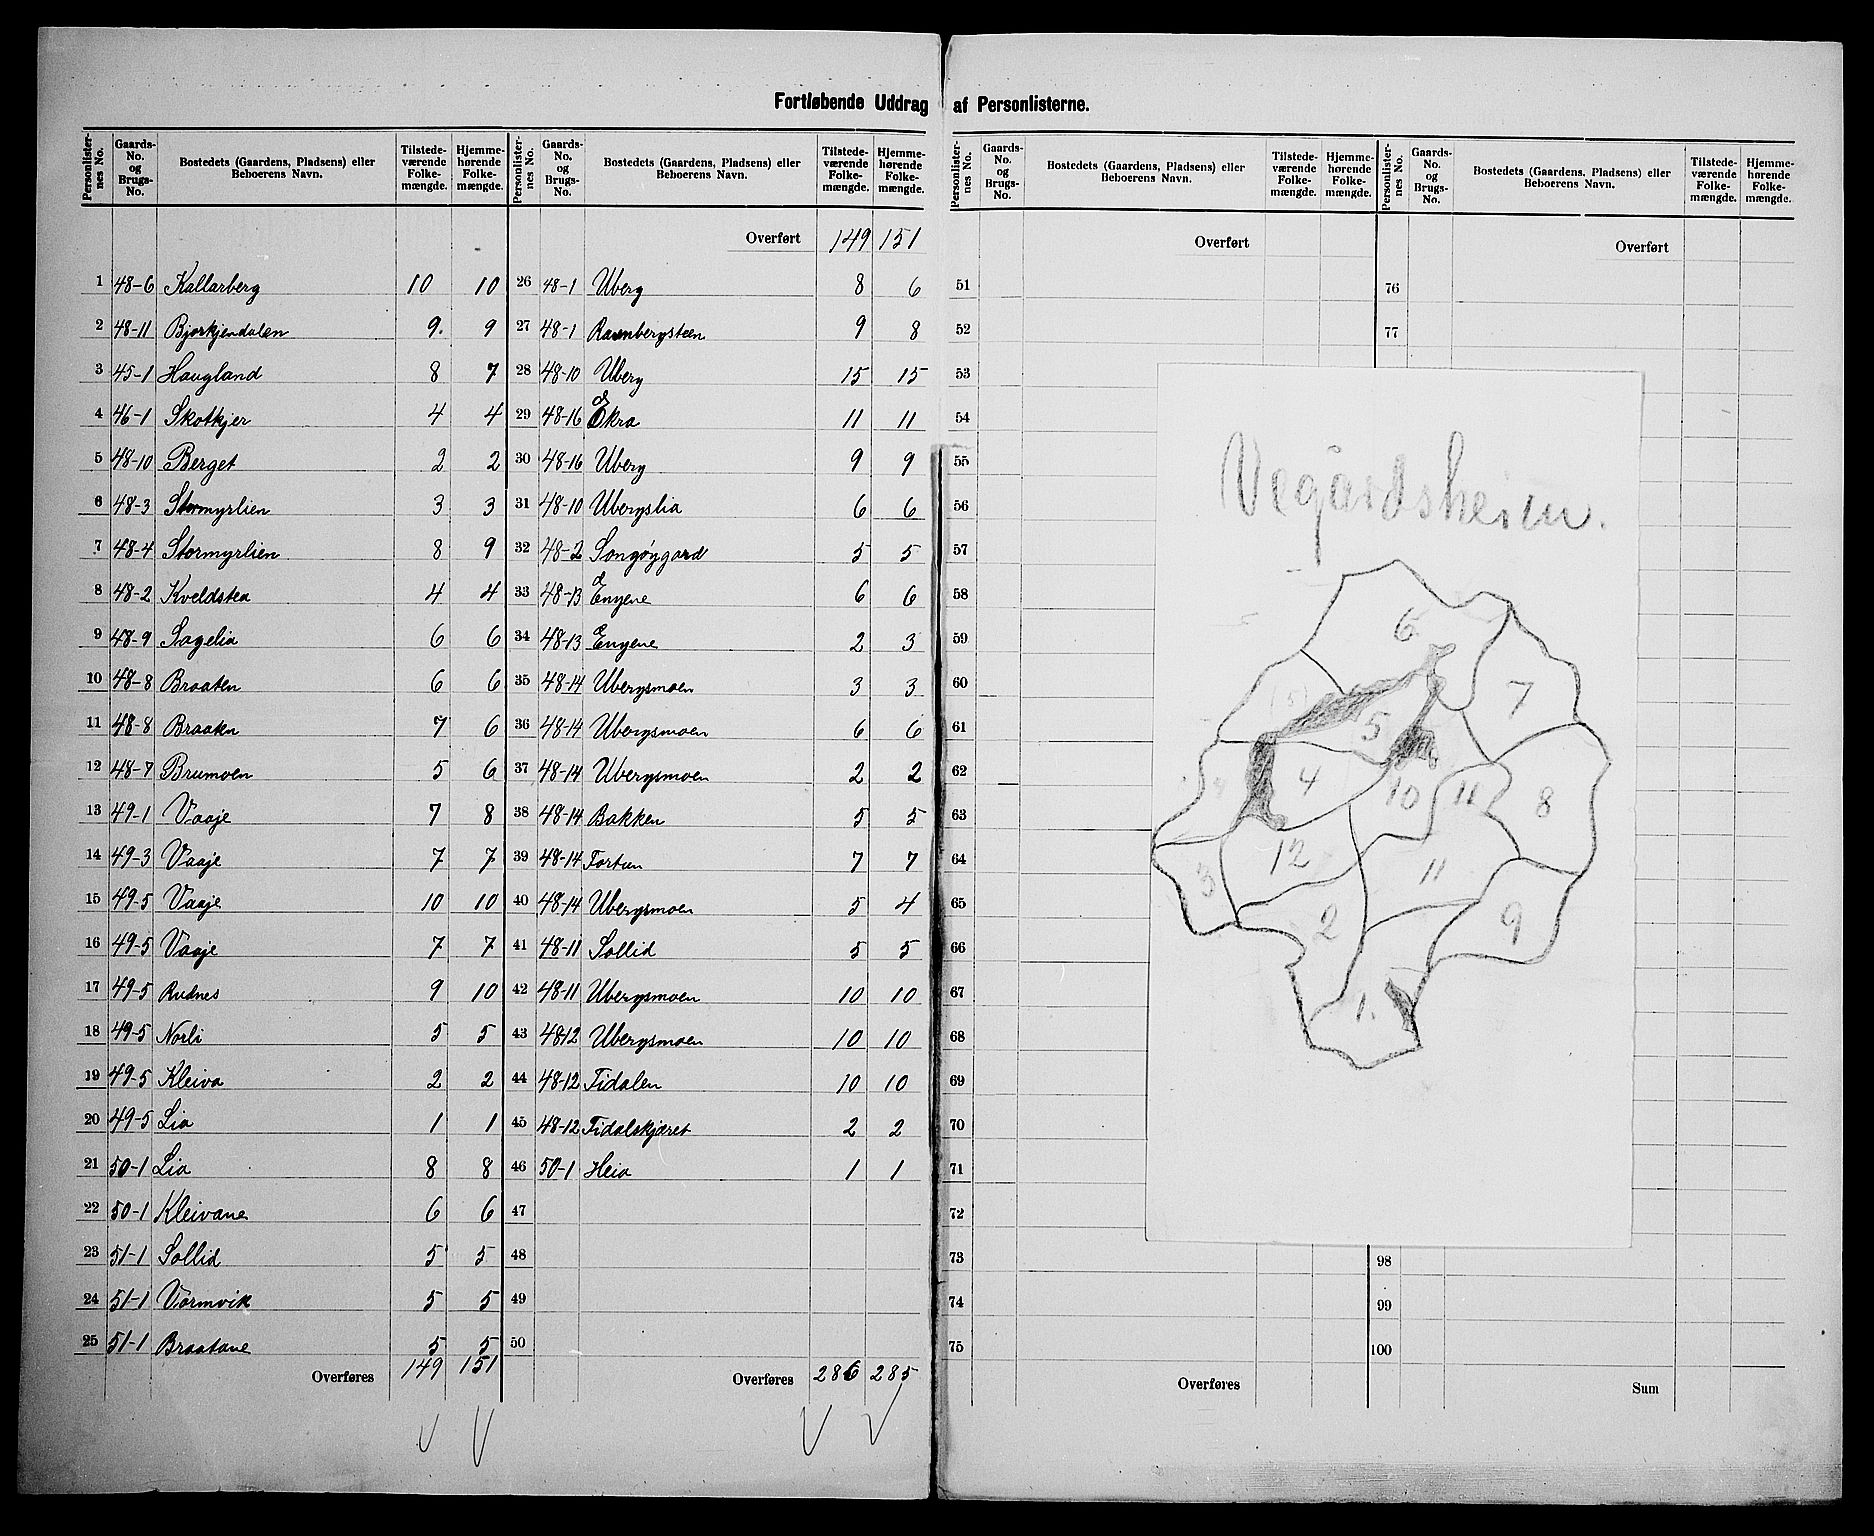 Fortløbende Uddrag af Personlisterne.
Personlisternes No. Gaards-No. og Brugs-No. Bostedets (Gaardens, Pladsens) eller Beboerens Navn. Tilstedeværende Folkemængde. Hjemmehørende Folkemængde.
1 48-6 Kallarberg 10 10
2 48-11 Bjørkjendalen 9. 9
3 45-1 Haugland 8 7
4 46-1 Skotkjer 4 4
5 48-10 Berget 2 2
6 48-3 Stormyrlien 3 3
7 48-4 Stormyrlien 8 9
8 48-2 Kveldstea 4 4
9 48-9 Sagelia 6 6
10 48-8 Braaten 6 6
11 48-8 Braaten 7 6
12 48-7 Brumoen 5 6
13 49-1 Vaaje 7 8
14 49-3 Vaaje 7 7
15 49-5 Vaaje 10 10
16 49-5 Vaaje 7 7
17 49-5 Rudnes 9 10
18 49-5 Norli 5 5
19 49-5 Kleiva 2 2
20 49-5 Lia 1 1
21 50-1 Lia 8 8
22 50-1 Kleivane 6 6
23 51-1 Sollid 5 5
24 51-1 Vormvik 5 5
25 51-1 Braatane 5 5
Overføres 149 151
Personlisternes No. Gaards-No. og Brugs-No. Bostedets (Gaardens, Pladsens) eller Beboerens Navn. Tilstedeværende Folkemængde. Hjemmehørende Folkemængde.
Overført 149 151
26 48-1 Uberg 8 6
27 48-1 Ravnbergsteen 9 8
28 48-10 Uberg 15 15
29 48-16 Ekra 11 11
30 48-16 Uberg 9 9
31 48-10 Ubergslia 6 6
32 48-2 Songøygard 5 5
33 48-13 Engene 6 6
34 48-13 Engene 2 3
35 48-14 Ubergsmoen 3 3
36 48-14 Ubergsmoen 6 6
37 48-14 Ubergsmoen 2 2
38 48-14 Bakken 5 5
39 48-14 Tortun 7 7
40 48-14 Ubergsmoen 5 4
41 48-11 Sollid 5 5
42 48-11 Ubergsmoen 10 10
43 48-12 Ubergsmoen 10 10
44 48-12 Tidalen 10 10
45 48-12 Tidalskjæret 2 2
46 50-1 Heia 1 1
47
48
49
50
Overføres 286 285
Personlisternes No. Gaards-No. og Brugs-No. Bostedets (Gaardens, Pladsens) eller Beboerens Navn. Tilstedeværende Folkemængde. Hjemmehørende Folkemængde.
Overført
51
52
53
54
55
56
57
58
59
60
61
62
63
64
65
66
67
68
69
70
71
72
73
74
75
Overføres
Personlisternes No. Gaards-No. og Brugs-No. Bostedets (Gaardens, Pladsens) eller Beboerens Navn. Tilstedeværende Folkemængde. Hjemmehørende Folkemængde.
Overført
76
77
98
99
100
Sum
Vegårdsheim.
6
7
5
4
10
11
8
12
3
11
2
9
1.